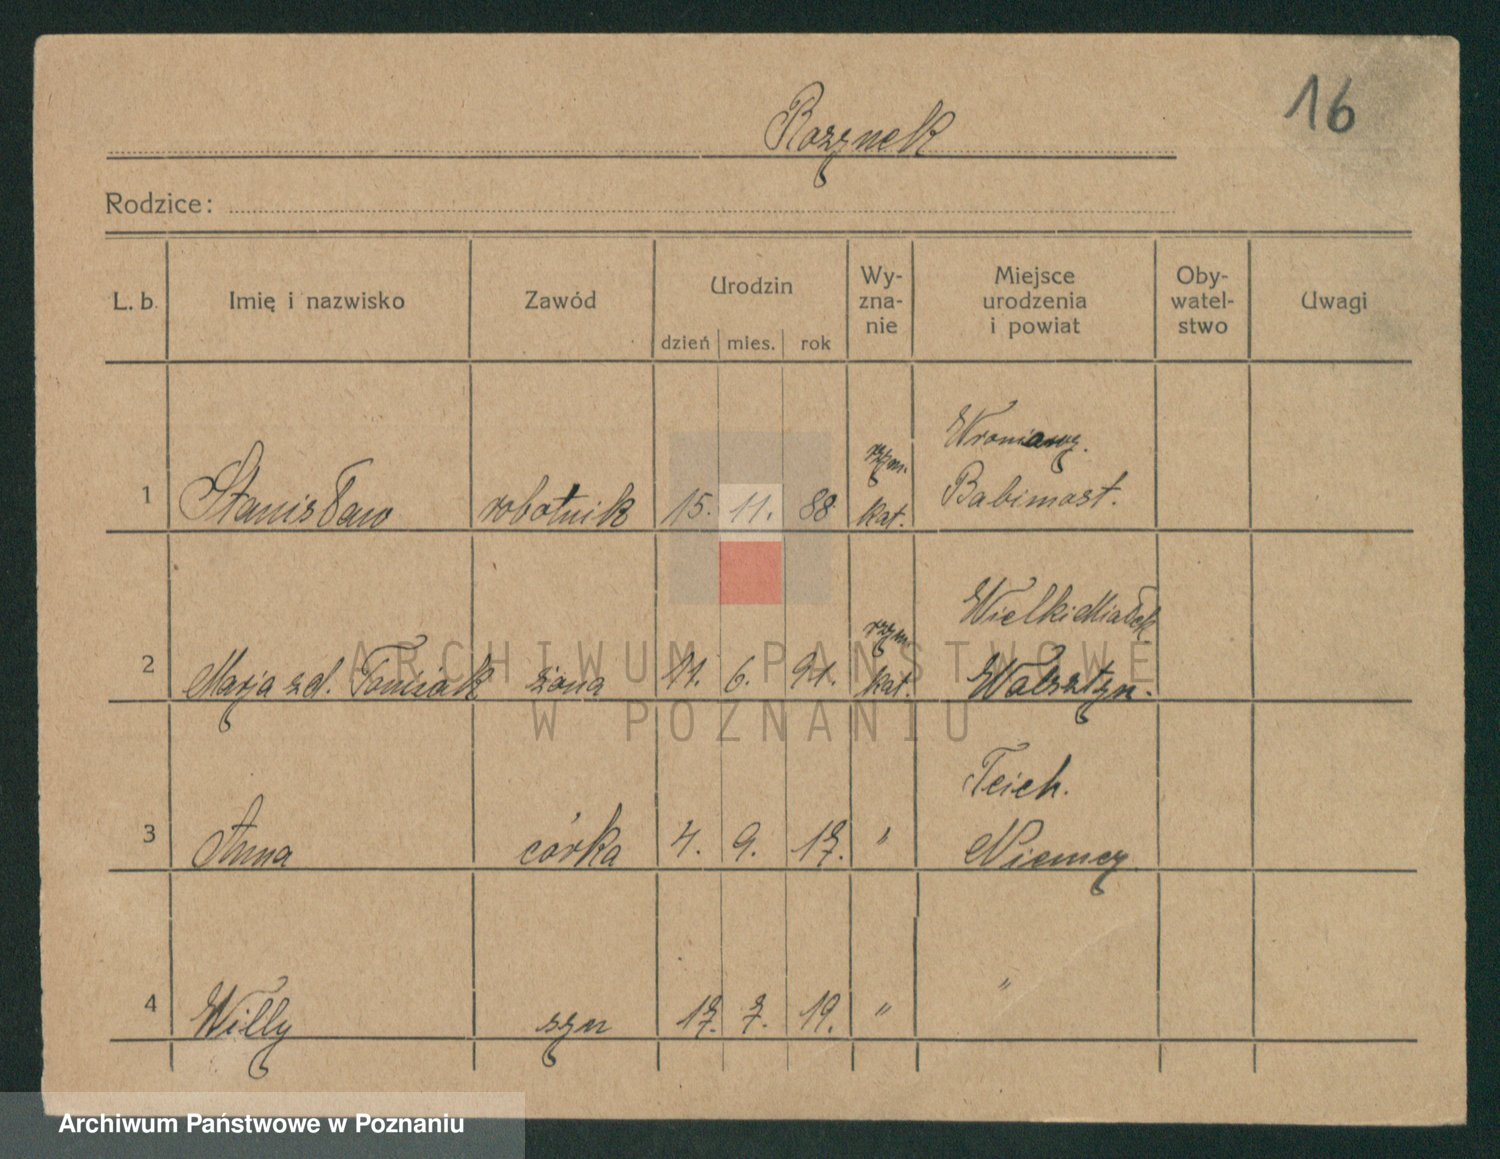 16
Rozynek
Rodzice:
L. b. Imię i nazwisko Zawód Urodzin dzień mies. rok Wy-zna-nie Miejsce urodzenia i powiat Oby-watel-stwo Uwagi
Wroniawy.
rzym.
1 Stanisław robotnik 15. 11. 88 kat. Babimost.
Wielki
rzym.
2 Marja zd. Tomiak żona 11. 6. 91. kat. Wolsztyn.
Teich.
3 Anna córka 4. 9. 17. " Niemcy.
4 Willy syn 17. 7. 19. " "
ARCHIWUM PAŃSTWOWE
W POZNANIU
Archiwum Państwowe w Poznaniu